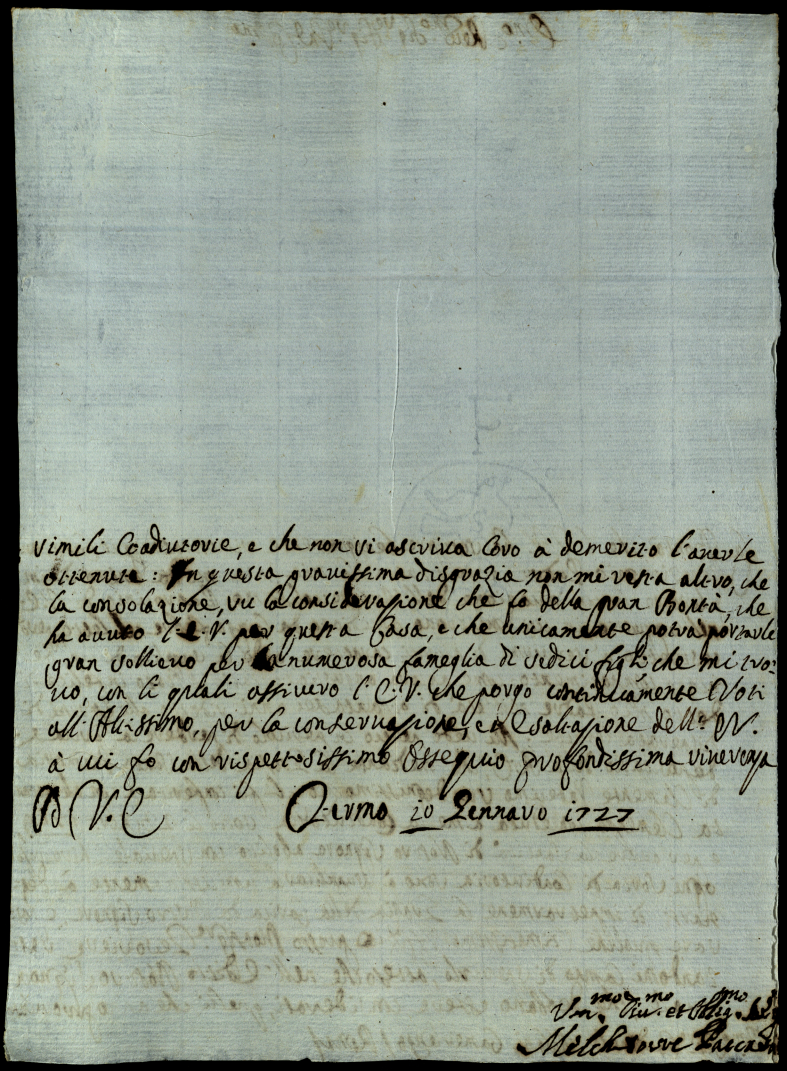 simili Coadiutorie, e che non si ascriva loro à demerito l'averle
ottenute: In questa gravissima disgrazia non mi resta altro, che
la consolazione, su la considerazione che fo della gran Bontà, che
ha avuto l'E.V. per questa Casa, e che unicamente potrà portarle
gran sollievo per la numerosa fameglia di sedici figli che mi tro-
vo, con li quali assicuro l'E.V. che porgo continuamente Voti
all'Altissimo, per la conservazione, et Esaltazione dell' E.V.
à cui fo con rispettosissimo Ossequio profondissima riverenza
D V. E Fermo 10 Gennaro 1727
Um.mo e Div.mo et Oblig.mo
Melchiorre